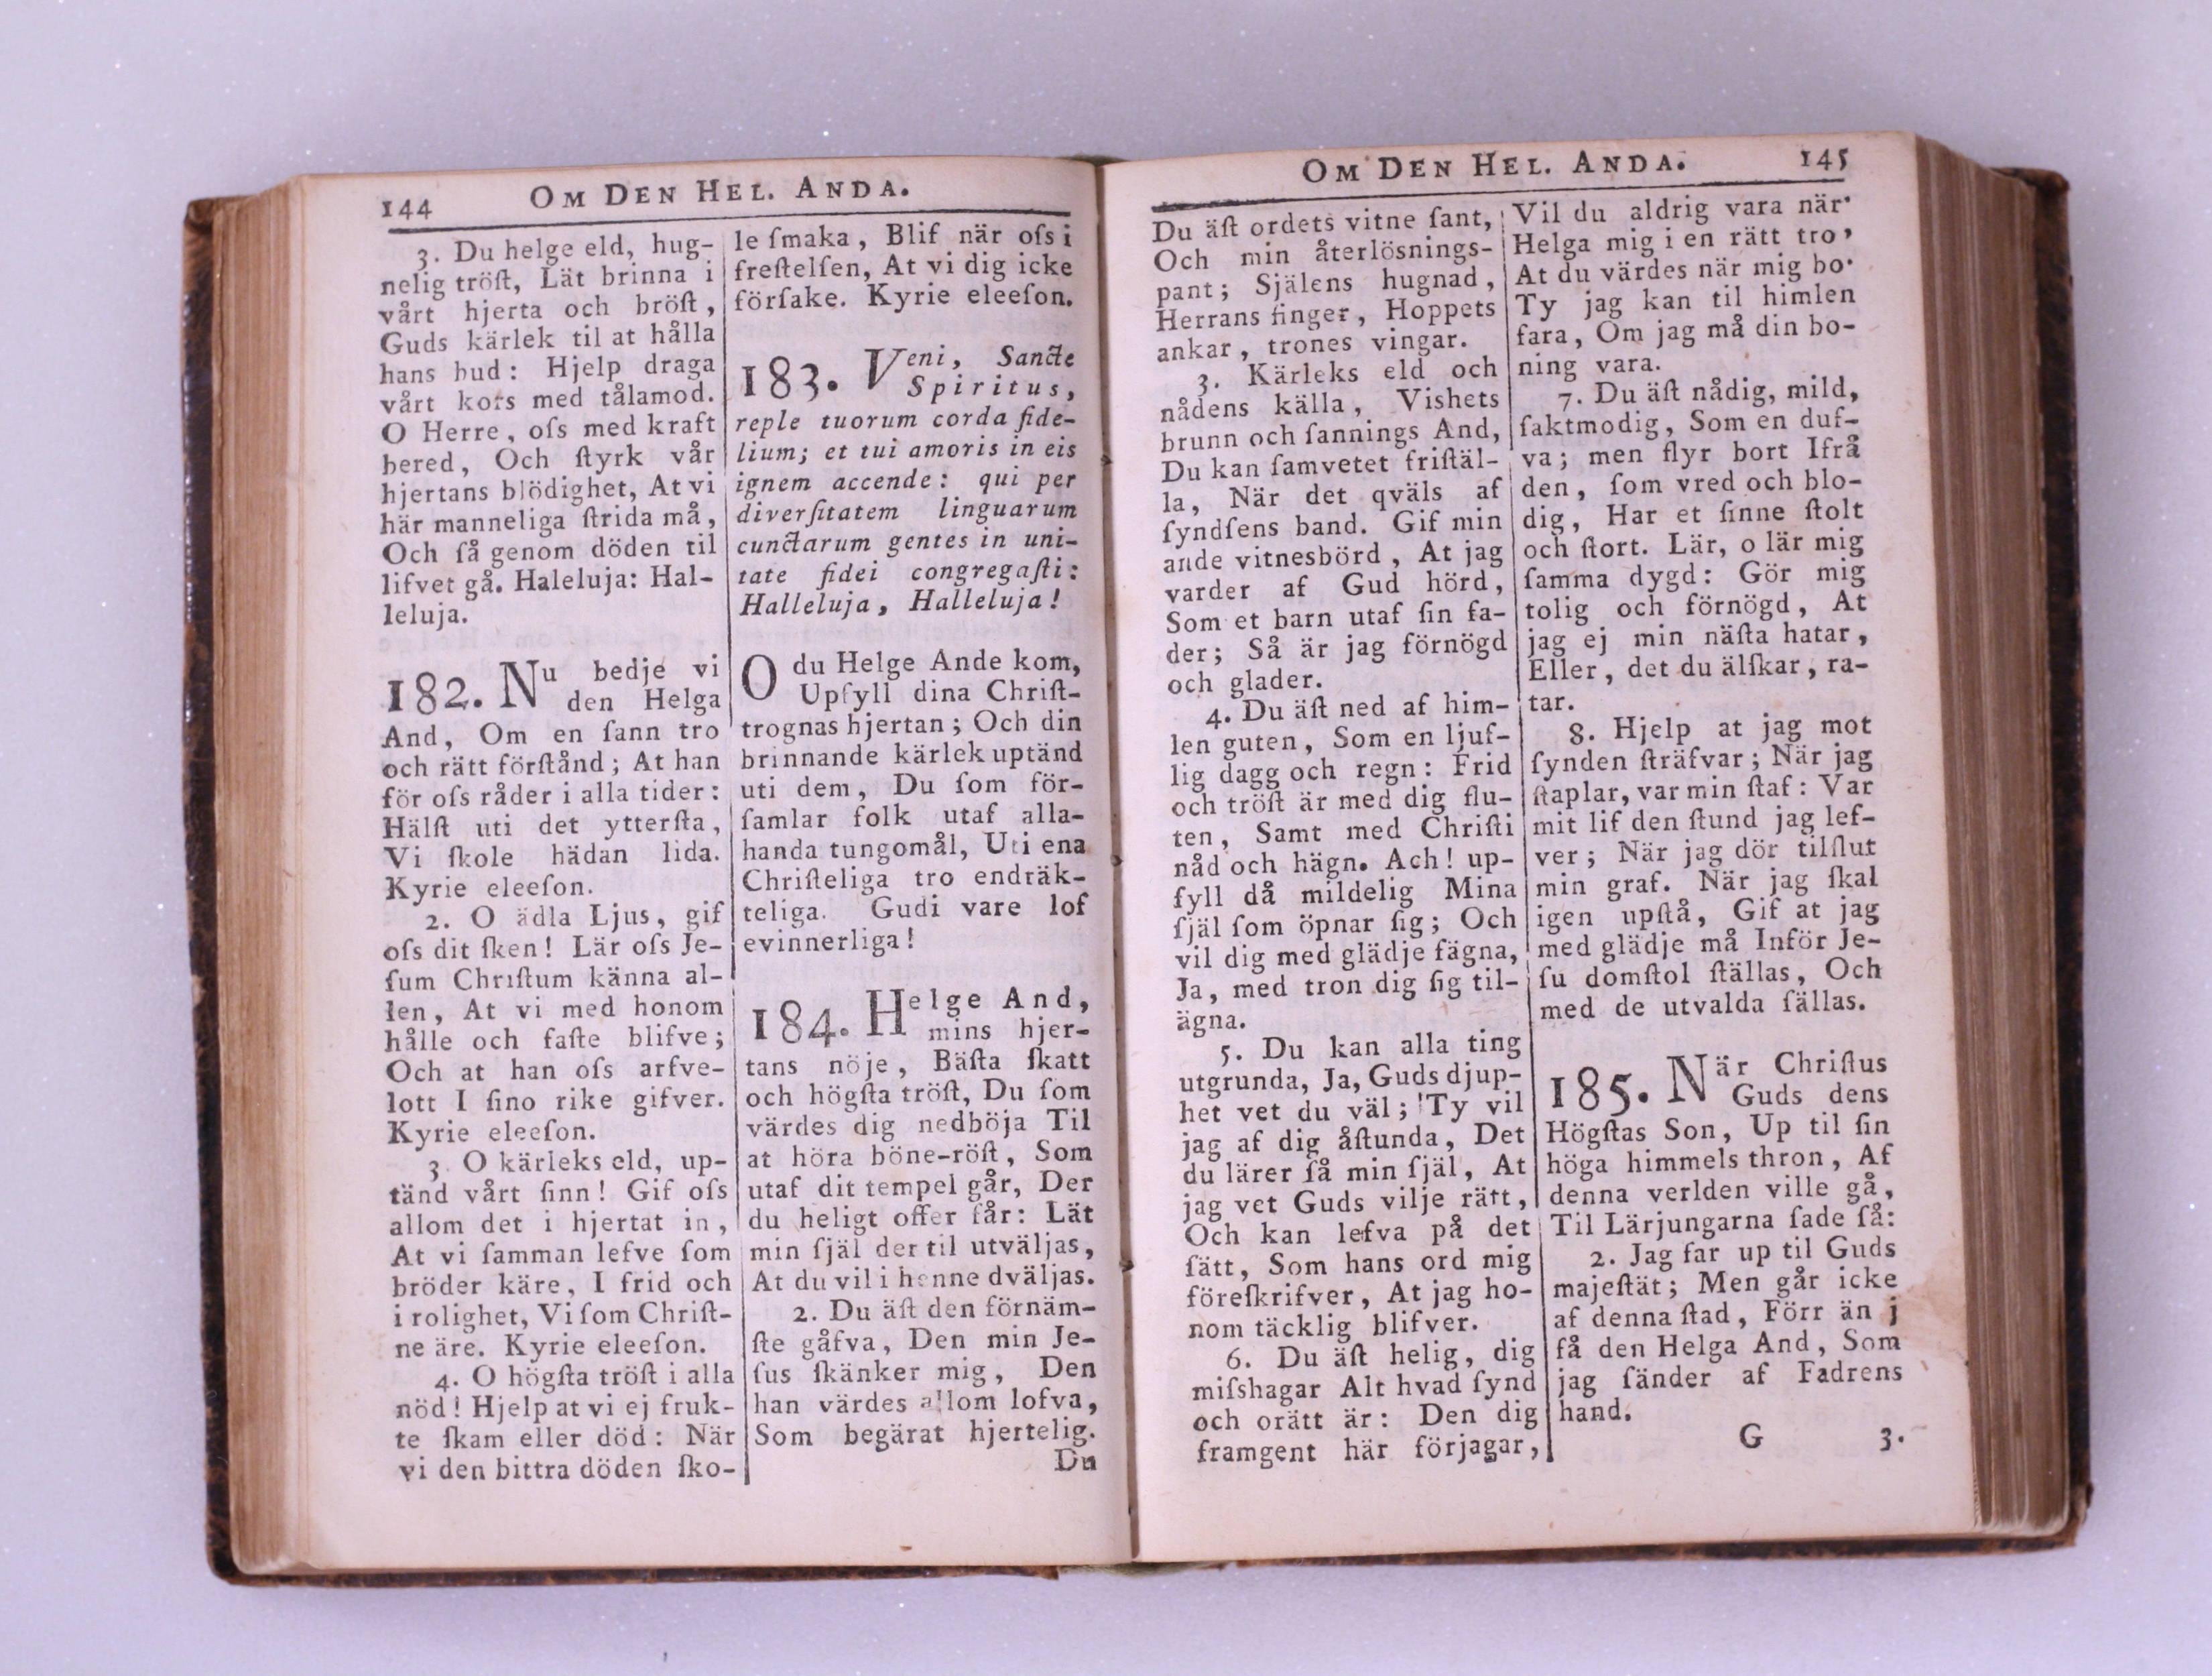 144 OM DEN HEL. ANDA.
3. Du helge eld, hug-
nelig tröſt, Lät brinna i
vårt hjerta och bröſt,
Guds kärlek til at hålla
hans bud: Hjelp draga
vårt kors med tålamod.
O Herre, oſs med kraft
bered, Och ſtyrk vår
hjertans blödighet, At vi
här manneliga ſtrida må,
Och ſå genom döden til
lifvet gå. Haleluja: Hal-
leluja.
182. Nu bedje vi
den Helga
And, Om en ſann tro
och rätt förſtånd; At han
för oſs råder i alla tider:
Hälſt uti det ytterſta,
Vi ſkole hädan lida.
Kyrie eleeſon.
2. O ädla Ljus, gif
oſs dit ſken! Lär oſs Je-
ſum Chriſtum känna al-
len, At vi med honom
hålle och faſte blifve;
Och at han oſs arfve-
lott I ſino rike gifver.
Kyrie eleeſon.
3. O kärleks eld, up-
tänd vårt ſinn! Gif oſs
allom det i hjertat in,
At vi ſamman lefve ſom
bröder käre, I frid och
i rolighet, Vi ſom Chriſt-
ne äre. Kyrie eleeſon.
4. O högſta tröſt i alla
nöd! Hjelp at vi ej fruk-
te ſkam eller död: När
vi den bittra döden ſko-
le ſmaka, Blif när oſs i
freſtelſen, At vi dig icke
förſake. Kyrie eleeſon.
183. Veni, Sancte
Spiritus,
reple tuorum corda fide-
lium; et tui amoris in eis
ignem accende: qui per
diverſitatem linguarum
cunctarum gentes in uni-
tate fidei congregaſti:
Halleluja, Halleluja!
O du Helge Ande kom,
Upfyll dina Chriſt-
trognas hjertan; Och din
brinnande kärlek uptänd
uti dem, Du ſom för-
ſamlar folk utaf alla-
handa tungomål, Uti ena
Chriſteliga tro endräk-
teliga. Gudi vare lof
evinnerliga!
184. Helge And,
mins hjer-
tans nöje, Bäſta ſkatt
och högſta tröſt, Du ſom
värdes dig nedböja Til
at höra böne-röſt, Som
utaf dit tempel går, Der
du heligt offer får: Lät
min ſjäl der til utväljas,
At du vil i henne dväljas.
2. Du äſt den förnäm-
ſte gåfva, Den min Je-
ſus ſkänker mig, Den
han värdes allom lofva,
Som begärat hjertelig.
Du
OM DEN HEL. ANDA. 145
Du äſt ordets vitne ſant,
Och min återlösnings-
pant; Själens hugnad,
Herrans finger, Hoppets
ankar, trones vingar.
3. Kärleks eld och
nådens källa, Vishets
brunn och ſannings And,
Du kan ſamvetet friſtäl-
la, När det qväls af
ſyndſens band. Gif min
ande vitnesbörd, At jag
varder af Gud hörd,
Som et barn utaf ſin fa-
der; Så är jag förnögd
och glader.
4. Du äſt ned af him-
len guten, Som en ljuf-
lig dagg och regn: Frid
och tröſt är med dig flu-
ten, Samt med Chriſti
nåd och hägn. Ach! up-
fyll då mildelig Mina
ſjäl ſom öpnar ſig; Och
vil dig med glädje fägna,
Ja, med tron dig ſig til-
ägna.
5. Du kan alla ting
utgrunda, Ja, Guds djup-
het vet du väl; Ty vil
jag af dig åſtunda, Det
du lärer ſå min ſjäl, At
jag vet Guds vilje rätt,
Och kan lefva på det
ſätt, Som hans ord mig
föreſkrifver, At jag ho-
nom täcklig blifver.
6. Du äſt helig, dig
miſshagar Alt hvad ſynd
och orätt är: Den dig
framgent här förjagar,
Vil du aldrig vara när.
Helga mig i en rätt tro,
At du värdes när mig bo.
Ty jag kan til himlen
fara, Om jag må din bo-
ning vara.
7. Du äſt nådig, mild,
ſaktmodig, Som en duf-
va; men flyr bort Ifrå
den, ſom vred och blo-
dig, Har et ſinne ſtolt
och ſtort. Lär, o lär mig
ſamma dygd: Gör mig
tolig och förnögd, At
jag ej min näſta hatar,
Eller, det du älſkar, ra-
tar.
8. Hjelp at jag mot
ſynden ſträfvar; När jag
ſtaplar, var min ſtaf: Var
mit lif den ſtund jag lef-
ver; När jag dör tilſlut
min graf. När jag ſkal
igen upſtå, Gif at jag
med glädje må Inför Je-
ſu domſtol ſtällas, Och
med de utvalda ſällas.
185. När Chriſtus
Guds dens
Högſtas Son, Up til ſin
höga himmels thron, Af
denna verlden ville gå,
Til Lärjungarna ſade ſå:
2. Jag far up til Guds
majeſtät; Men går icke
af denna ſtad, Förr än j
få den Helga And, Som
jag ſänder af Fadrens
hand.
G 3.